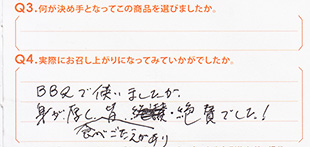 Q3.何が決め手となってこの商品を選びましたか。
Q4.実際にお召し上がりになってみていかがでしたか。
BBQで使いましたが、
身が厚く、皆、絶賛でした!
食べごたえがあり